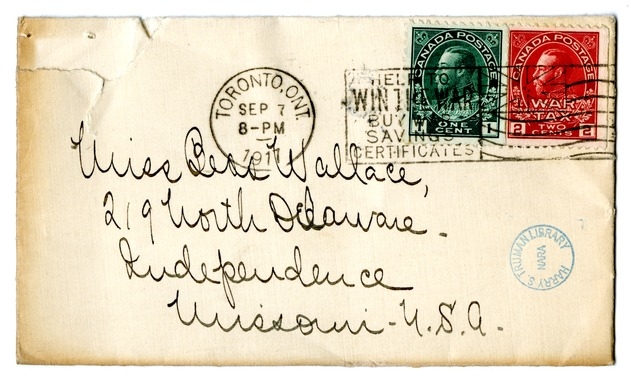 CANADA POSTAGE
1 ONE CENT 1
CANADA POSTAGE
WAR TAX
2 TWO CENTS 2
TORONTO, ONT.
SEP 7
8-PM
1917
HELP TO
WIN THE WAR
BUY WAR
SAVINGS
CERTIFICATES
Miss Bess Wallace,
219 North Delaware.
Independence
Missouri - U.S.A.
HARRY S. TRUMAN LIBRARY
NARA